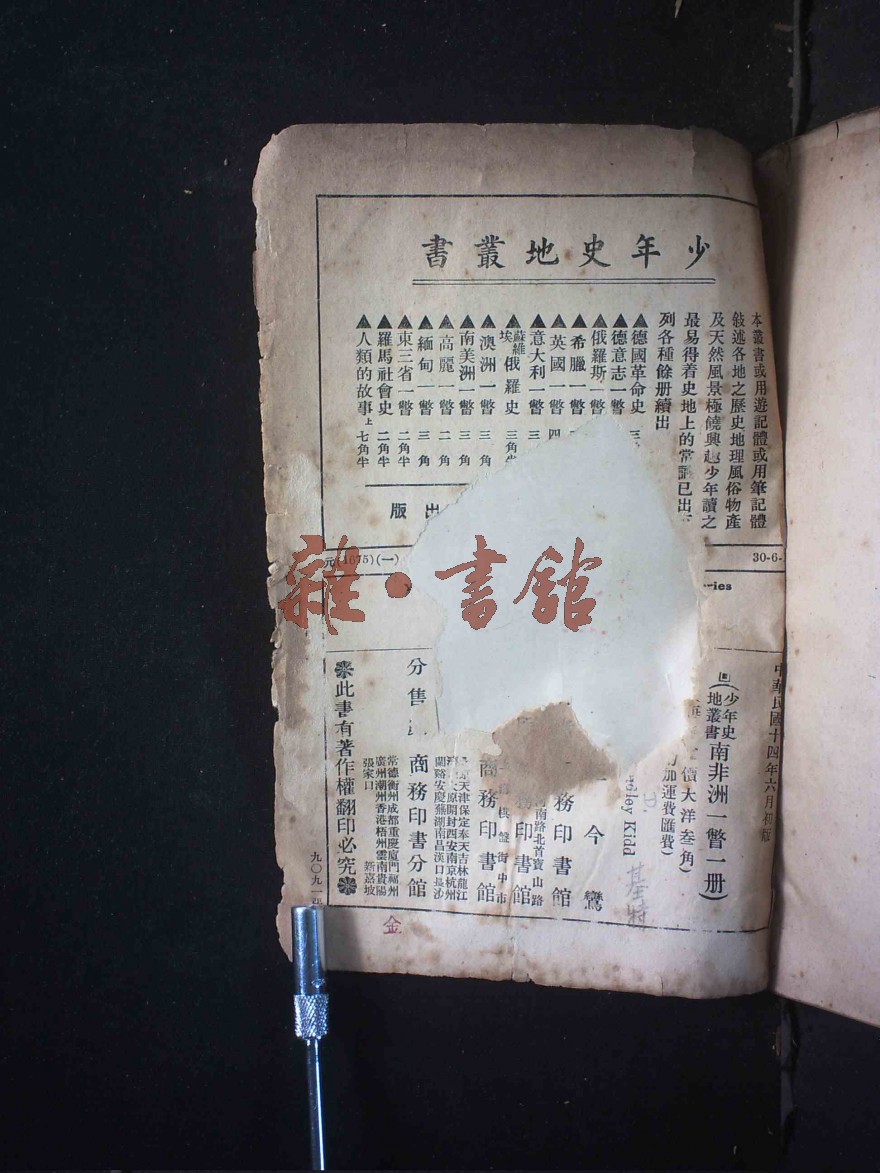 少年史地叢書
本叢書或用遊記體或用筆記體
敍述各地之歷史地理風俗物產
及天然風景極饒興趣少年讀之
最易得着史地上的常識已出下
列各種餘册續出
▲德國革命史 三
▲德意志一瞥
▲俄羅斯一瞥
▲希臘一瞥
▲英國一瞥 四
▲意大利一瞥 三
▲蘇維埃俄羅史 三角半
▲澳洲一瞥 三角
▲南美洲一瞥 三角
▲高麗一瞥 二角
▲緬甸一瞥 三角
▲東三省一瞥 二角半
▲羅馬社會史 二角半
▲人類的故事上 七角半
出版
元(1675)(一)
30-6-
ries
雜·書館
中華民國十四年六月初版
(少年史地叢書)南非洲一瞥一册)
價大洋叁角)
加運費匯費)
dley Kidd
基特
今鸞
河南路北首寶山路
務印書館
棋盤街中市
務印書館
商務印書館
分售
天津保定奉天吉林龍江
太原開封西安南京杭州
蘭谿安慶蕪湖南昌漢口長沙
商務印書分館
常德衡州成都重慶廈門福州
廣州潮州香港梧州雲南貴陽
張家口 新嘉坡
❋此書有著作權翻印必究❋
九〇九一
金